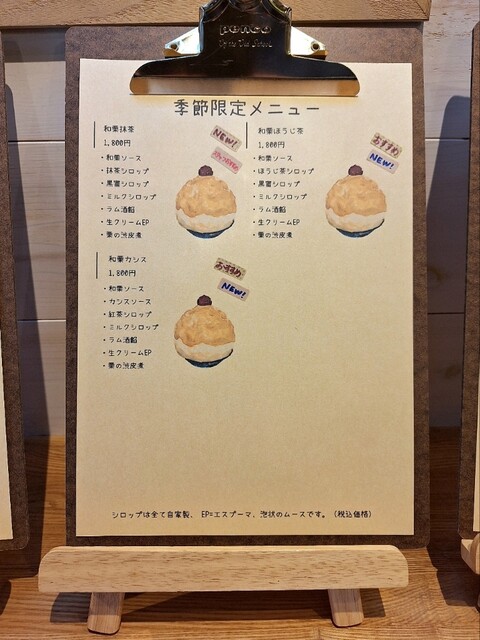 penco
季節限定メニュー
和栗抹茶
1,800円
・和栗ソース
・抹茶シロップ
・黒蜜シロップ
・ミルクシロップ
・ラム酒餡
・生クリームEP
・栗の渋皮煮
NEW!
和栗ほうじ茶
1,800円
・和栗ソース
・ほうじ茶シロップ
・黒蜜シロップ
・ミルクシロップ
・ラム酒餡
・生クリームEP
・栗の渋皮煮
おすすめ
NEW!
和栗カシス
1,800円
・和栗ソース
・カシスソース
・紅茶シロップ
・ミルクシロップ
・ラム酒餡
・生クリームEP
・栗の渋皮煮
おすすめ
NEW!
シロップは全て自家製、 EP=エスプーマ、泡状のムースです。（税込価格）